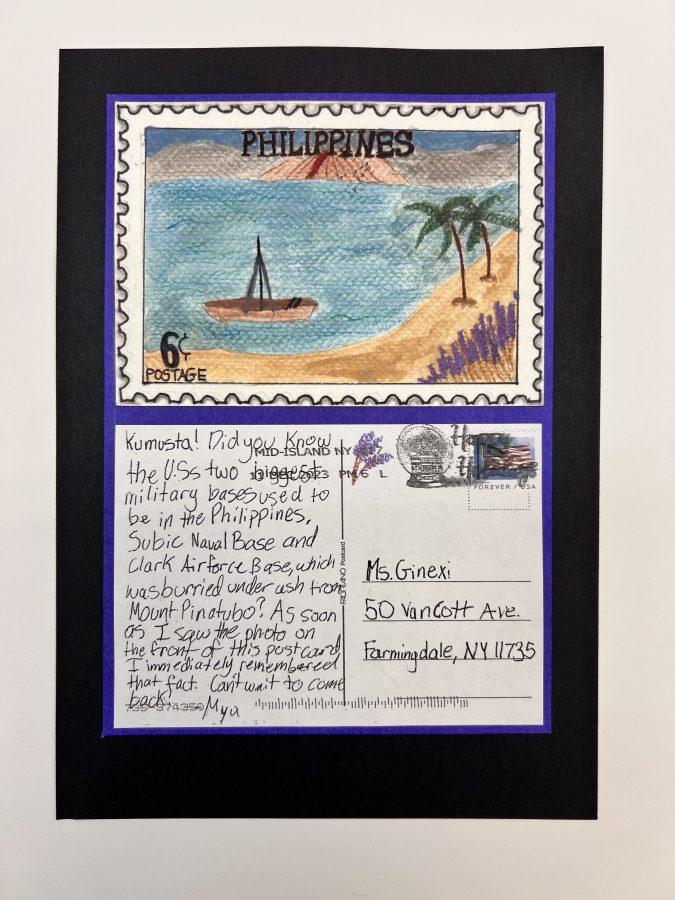 PHILIPPINES
6¢
POSTAGE
Kumusta! Did you know
the U.S.s two biggest
military bases used to
be in the Philippines,
Subic Naval Base and
Clark Airforce Base, which
was burried under ash from
Mount Pinatubo? As soon
as I saw the photo on
the front of this post card
I immediately remembered
that fact. Can't wait to come
back. Mya
MID-ISLAND NY
13 2023 PM 6 L
Happy
FOREVER / USA
Postcard
Ms. Ginexi
50 Van Cott Ave.
Farmingdale, NY 11735